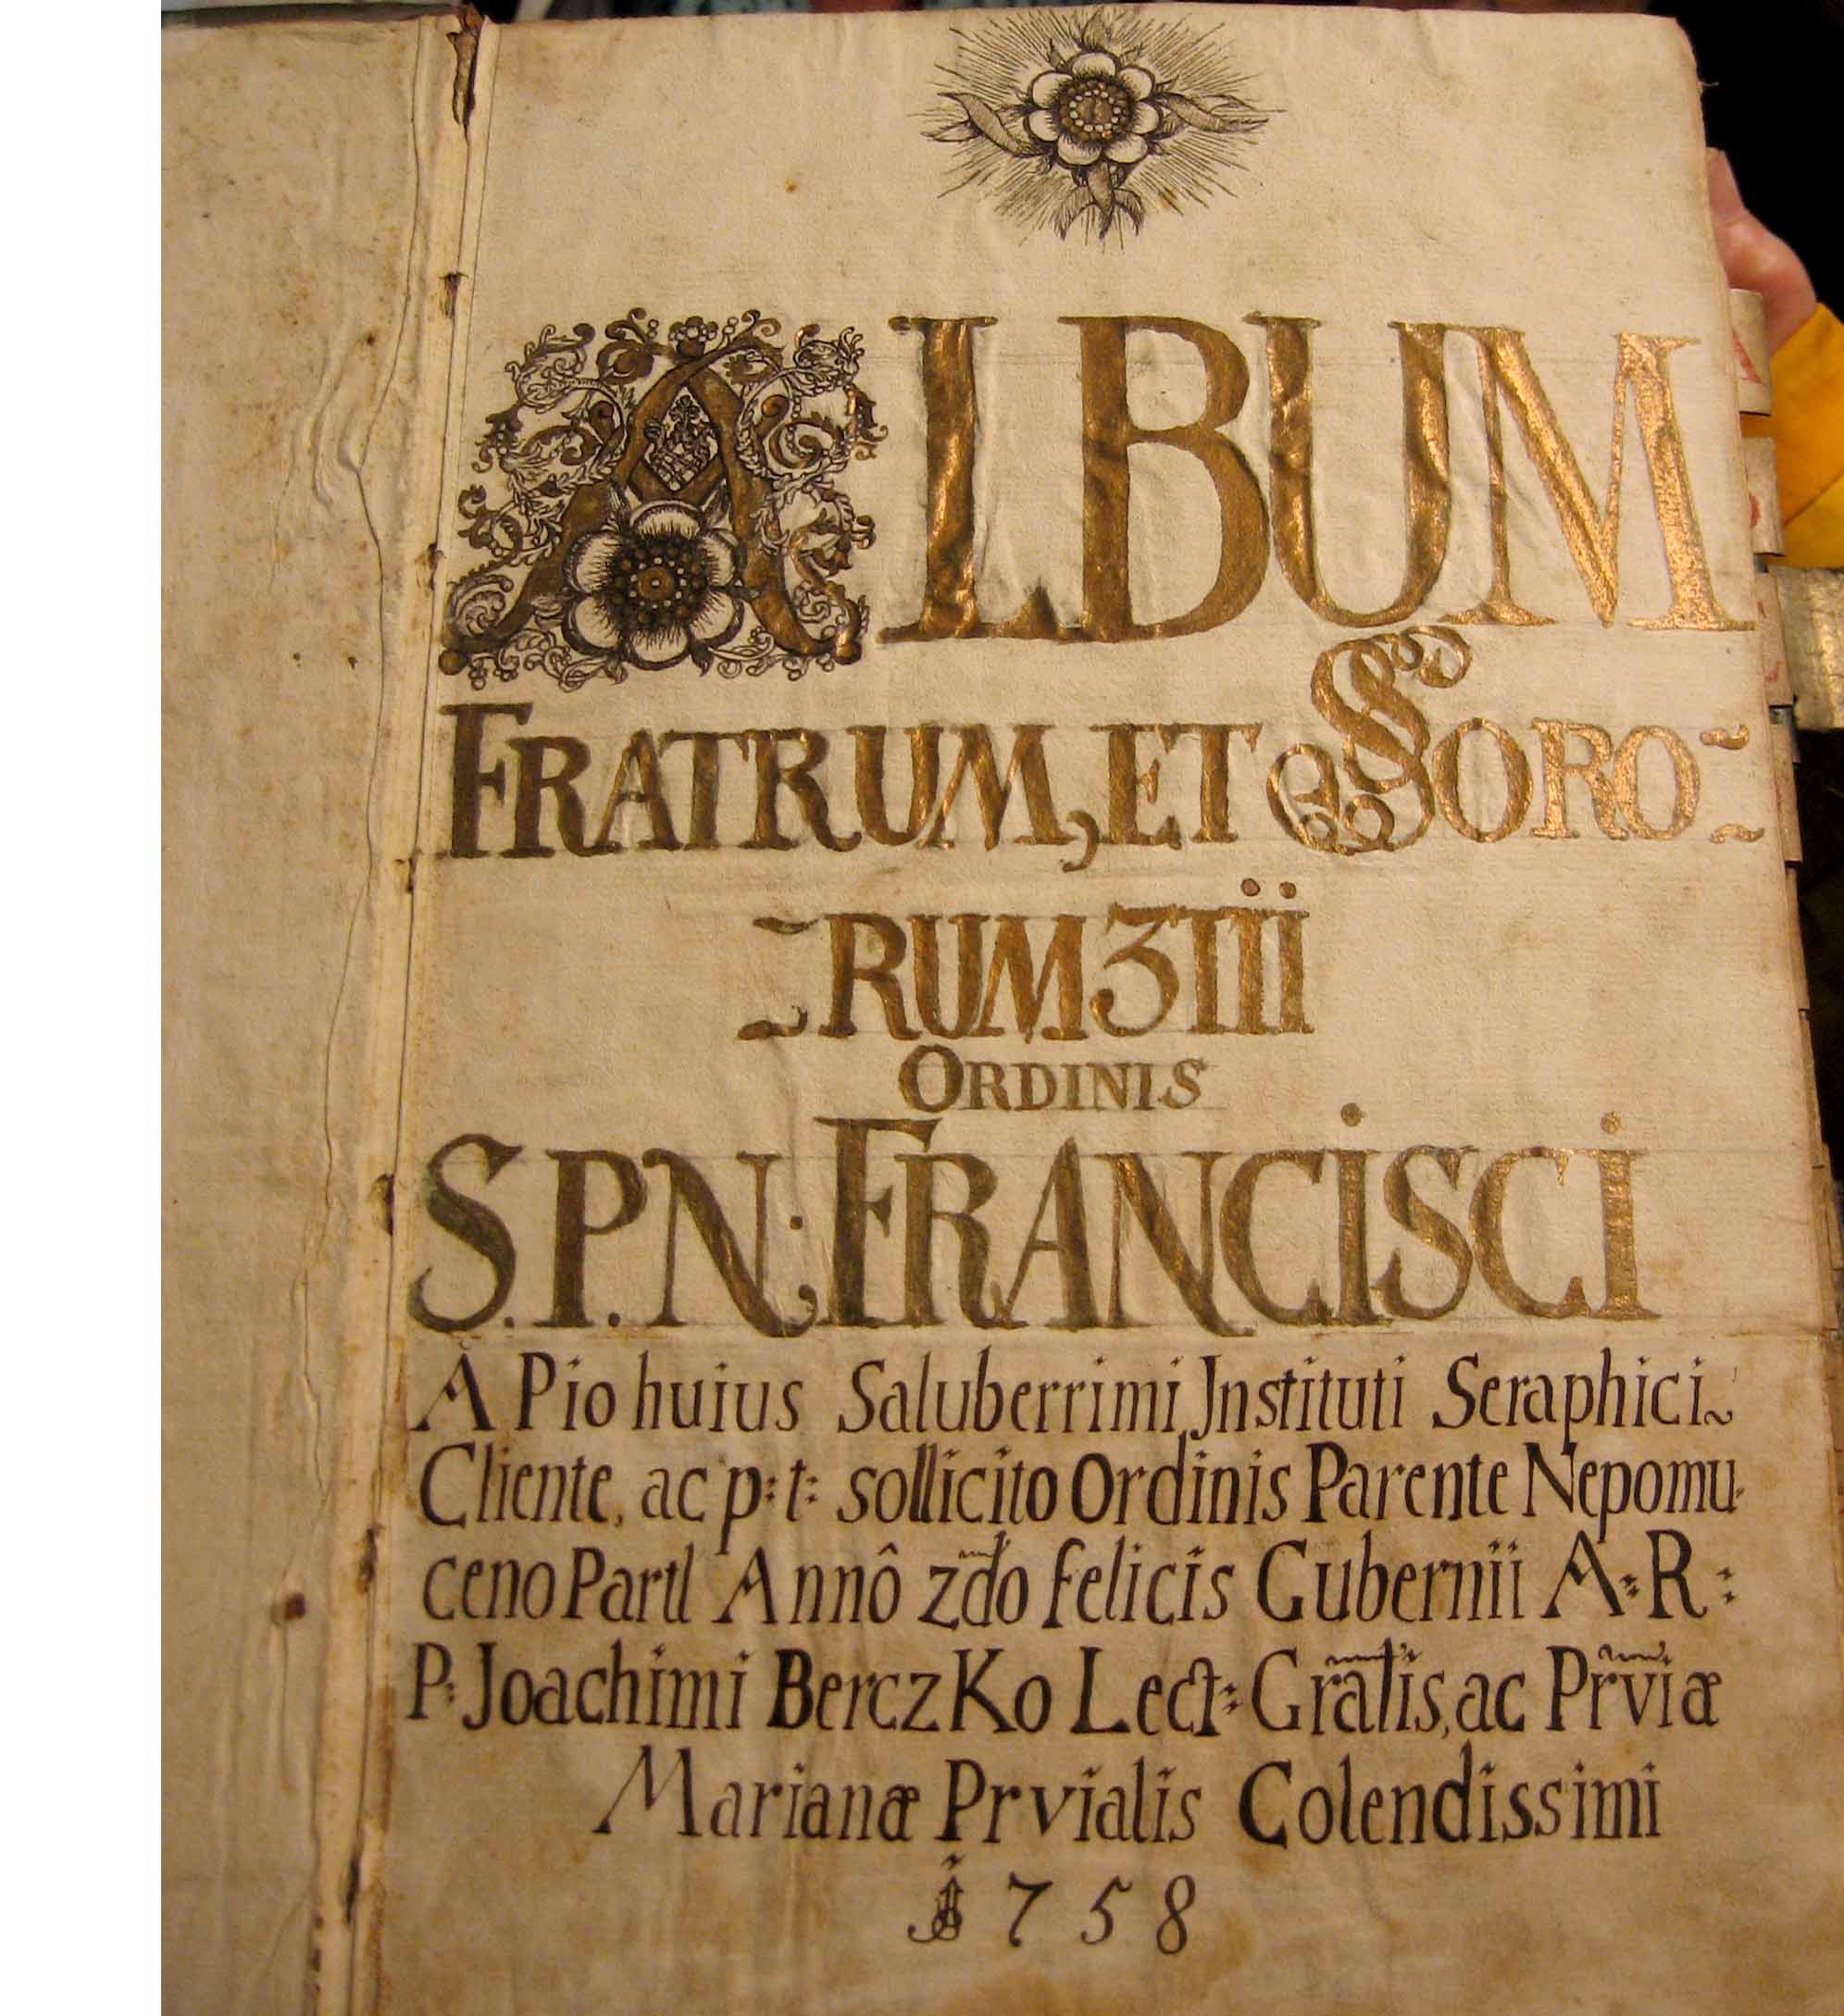 ALBUM
FRATRUM, ET SORO=
=RUM 3TII
ORDINIS
S. P. N: FRANCISCI
A Pio huius Saluberrimi Jnstituti Seraphici~
Cliente, ac p:t: sollicito Ordinis Parente Nepomu-
ceno Partl Annô 2dõ felicis Gubernii A:R:
P: Joachimi BerczKo Lect: Grãlis, ac Prṽiæ
Marianæ Prvialis Colendissimi
1758